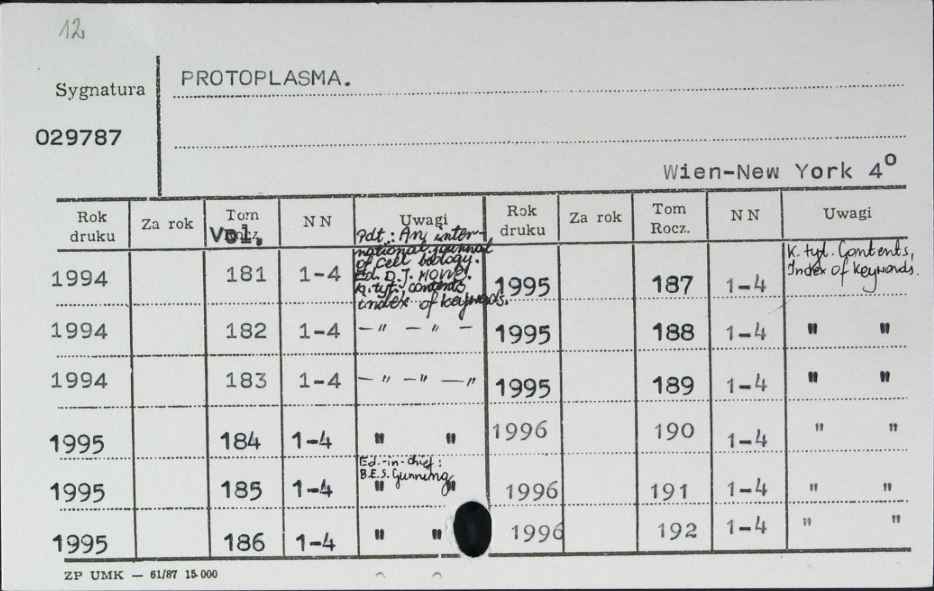 12
Sygnatura
029787
PROTOPLASMA.
Wien-New York 4°
Rok druku Za rok Tom Rocz. Vol. NN Uwagi Rok druku Za rok Tom Rocz. NN Uwagi
Pdt: An inter-
national journal
of cell biology.
Ed. D.J. Howel.
K. tyt. contents
index of keywords.
K. tyt. Contents,
Index of keywords.
1994 181 1-4 1995 187 1-4
1994 182 1-4 —"—"— 1995 188 1-4 " "
1994 183 1-4 —"—"—" 1995 189 1-4 " "
1995 184 1-4 " " 1996 190 1-4 " "
Ed.-in-chief:
B.E.S. Gunning
1995 185 1-4 " " 1996 191 1-4 " "
1995 186 1-4 " " 1996 192 1-4 " "
ZP UMK — 61/87 15 000